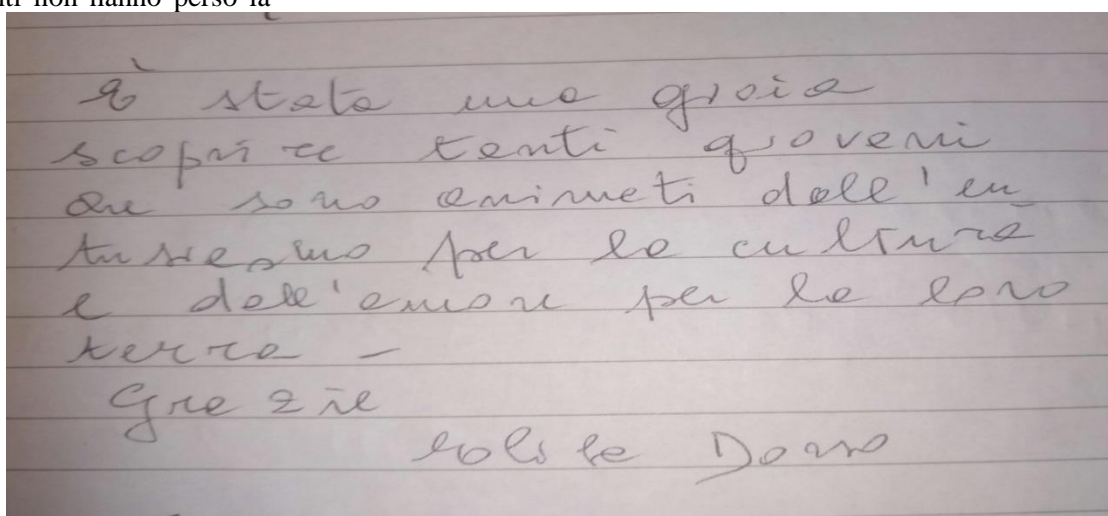 nti non hanno perso la
È stata una gioia
scoprire tanti giovani
che sono animati dall'en
tusiasmo per la cultura
e dall'amore per la loro
terra -
Grazie